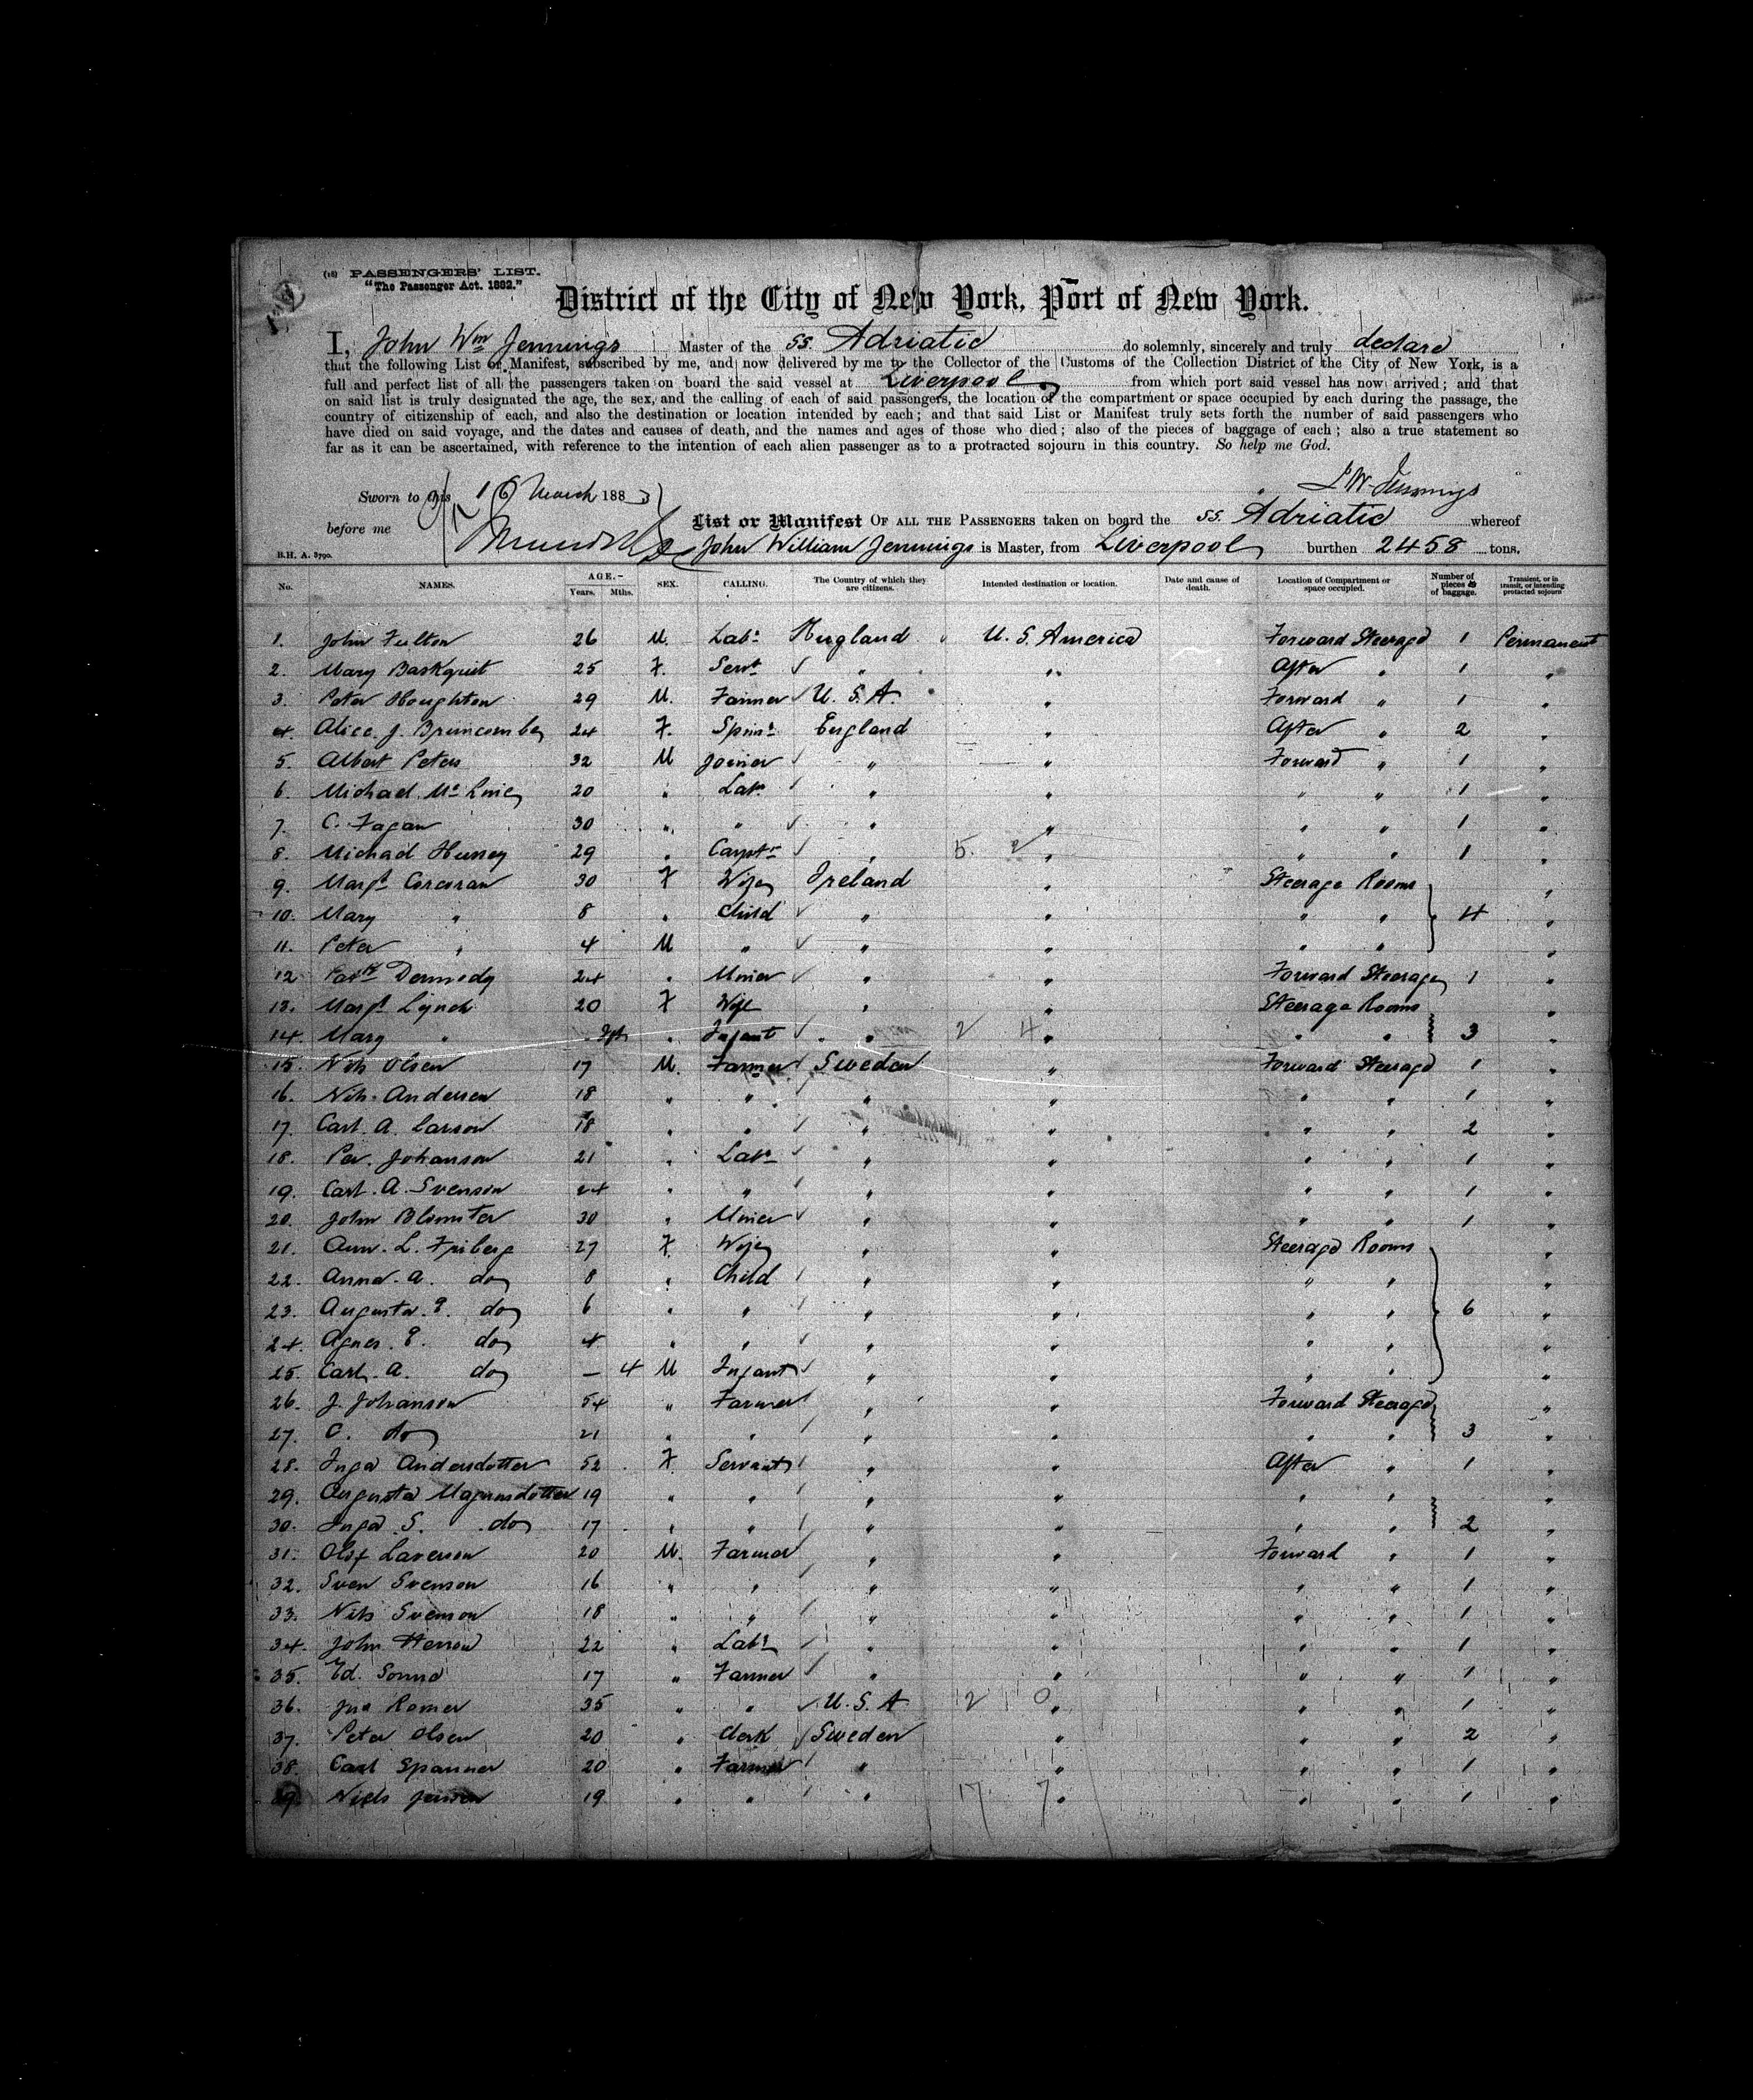 (18) PASSENGERS' LIST.
"The Passenger Act. 1882."
District of the City of New York, Port of New York.
I, John Wm Jennings Master of the SS. Adriatic do solemnly, sincerely and truly declare
that the following List or Manifest, subscribed by me, and now delivered by me to the Collector of the Customs of the Collection District of the City of New York, is a
full and perfect list of all the passengers taken on board the said vessel at Liverpool from which port said vessel has now arrived; and that
on said list is truly designated the age, the sex, and the calling of each of said passengers, the location of the compartment or space occupied by each during the passage, the
country of citizenship of each, and also the destination or location intended by each; and that said List or Manifest truly sets forth the number of said passengers who
have died on said voyage, and the dates and causes of death, and the names and ages of those who died; also of the pieces of baggage of each; also a true statement so
far as it can be ascertained, with reference to the intention of each alien passenger as to a protracted sojourn in this country. So help me God.
Sworn to this 16 March 1883 J W Jennings
before me
List or Manifest OF ALL THE PASSENGERS taken on board the SS. Adriatic whereof
John William Jennings is Master, from Liverpool burthen 2458 tons.
B.H. A. 3790.
No. NAMES. AGE.- Years. Mths. SEX. CALLING. The Country of which they are citizens. Intended destination or location. Date and cause of death. Location of Compartment or space occupied. Number of pieces of baggage. Transient, or in transit, or intending protracted sojourn
1. John Fulton 26 M. Labr England U. S. America Forward Steerage 1 Permanent
2. Mary Baskquit 25 F. Servt " " After " 1 "
3. Peter Houghton 29 M. Farmer U. S. A. " Forward " 1 "
4. Alice. J. Brimcombe 24 F. Spinr England " After " 2 "
5. Albert Peters 32 M Joiner " " Forward " 1 "
6. Michael 20 " Labr " " " " 1 "
7. C. Fagan 30 " " " " " " 1 "
8. Michael Hussey 29 " Carptr " 5. 2 " " " 1 "
9. Margt Corcoran 30 F Wife Ireland " Steerage Rooms "
10. Mary " 8 " Child " " " " 4 "
11. Peter " 4 M " " " " " "
12 Patk Dermody 24 " Miner " " Forward Steerage 1 "
13. Margt Lynch 20 F Wife " " Steerage Rooms "
14. Mary " Inft " Infant " 2 4 " " " 3 "
15. Nils Olsen 17 M. Farmer Sweden " Forward Steerage 1 "
16. Nils. Andersen 18 " " " " " " 1 "
17. Carl. A. Larson 18 " " " " " " 2 "
18. Per. Johanson 21 " Labr " " " " 1 "
19. Carl. A. Svenson 24 " " " " " " 1 "
20. John Blomster 30 " Miner " " " " 1 "
21. Ann. L. Friberg 27 F. Wife " " Steerage Rooms "
22. Anna. A. do 8 " Child " " " " "
23. Augusta. E. do 6 " " " " " " 6 "
24. Agnes. E. do 4 " " " " " " "
25. Carl. A. do — 4 M Infant " " " " "
26. J. Johanson 54 " Farmer " " Forward Steerage "
27. C. do 21 " " " " " " 3 "
28. Inga Andersdotter 52 F. Servant " " After " 1 "
29. Augusta Magnusdotter 19 " " " " " " "
30. Inga S. do 17 " " " " " " 2 "
31. Olof Laverson 20 M. Farmer " " Forward " 1 "
32. Sven Svenson 16 " " " " " " 1 "
33. Nils Svenson 18 " " " " " " 1 "
34. John 22 " Labr " " " " 1 "
35. Ed. 17 " Farmer " " " " 1 "
36. Jno Romer 35 " " U. S. A 2 0 " " " 1 "
37. Peter Olsen 20 " Clerk Sweden " " " 2 "
38. Carl Spanner 20 " Farmer " " " " 1 "
39. Niels Jensen 19 " " " 17 7 " " " 1 "